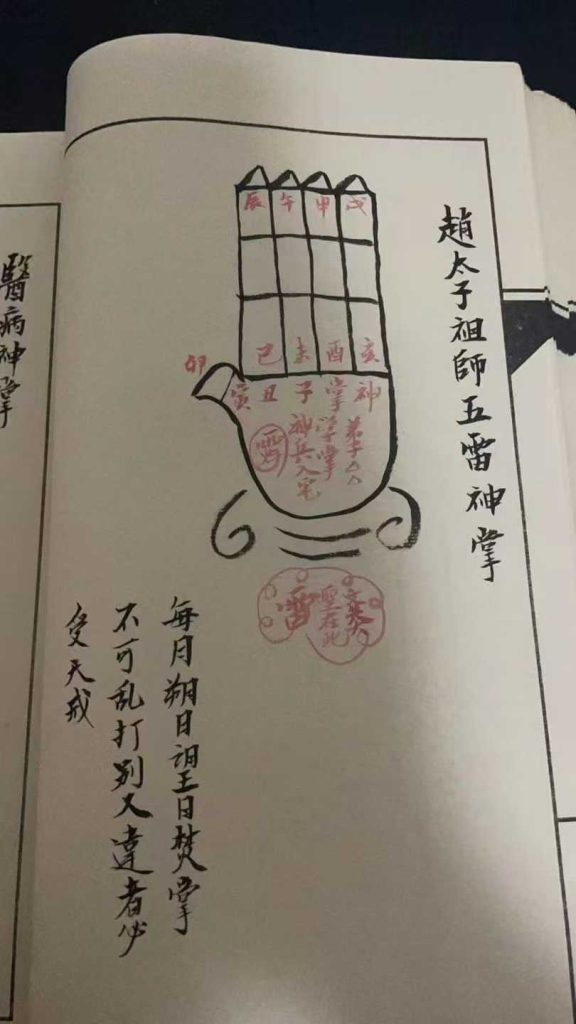 趙太子祖師五雷神掌
辰午申戌
巳未酉亥
卯
寅丑子掌神
弟子△△
学掌
神兵入宅
雷
每月朔日詚王日焚掌
不可乱打别人違者必
受天戒
醫病神掌